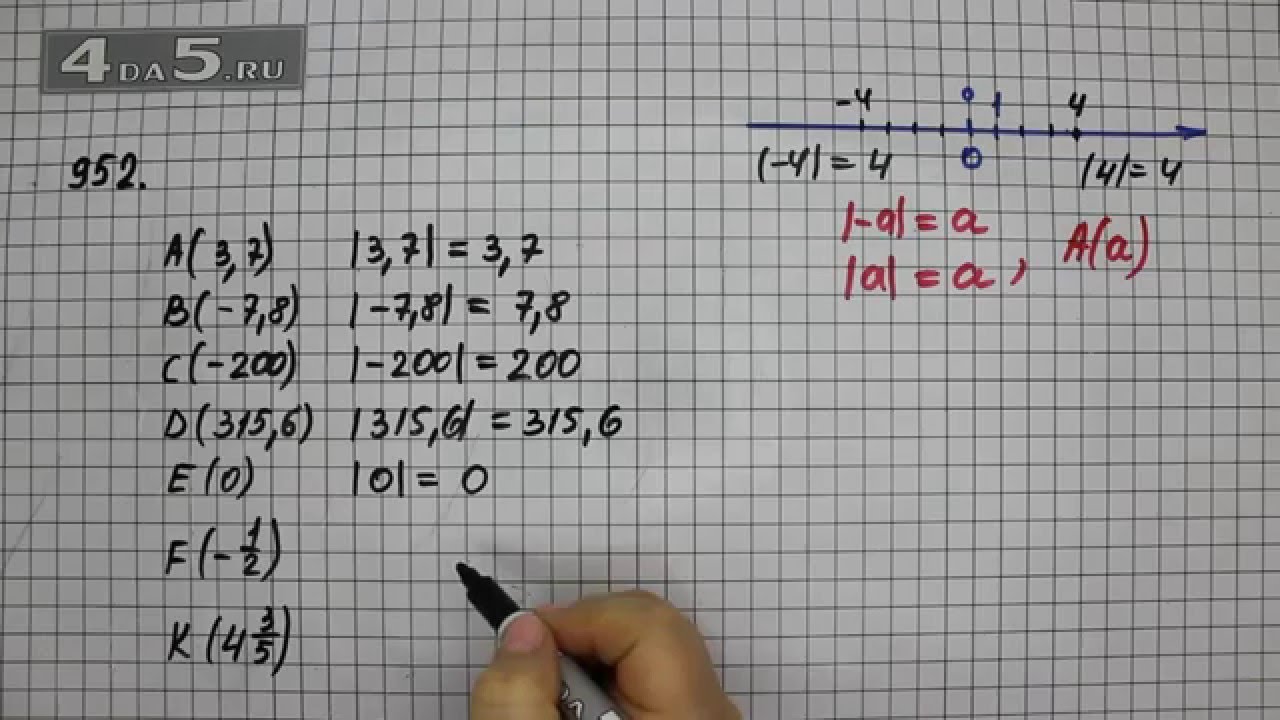 4DA5.RU
-4 0 1 4
952.
|-4| = 4 0 |4| = 4
|-a| = a
|a| = a, A(a)
A(3,7) |3,7| = 3,7
B(-7,8) |-7,8| = 7,8
C(-200) |-200| = 200
D(315,6) |315,6| = 315,6
E(0) |0| = 0
F(-1/2)
K(4 3/5)